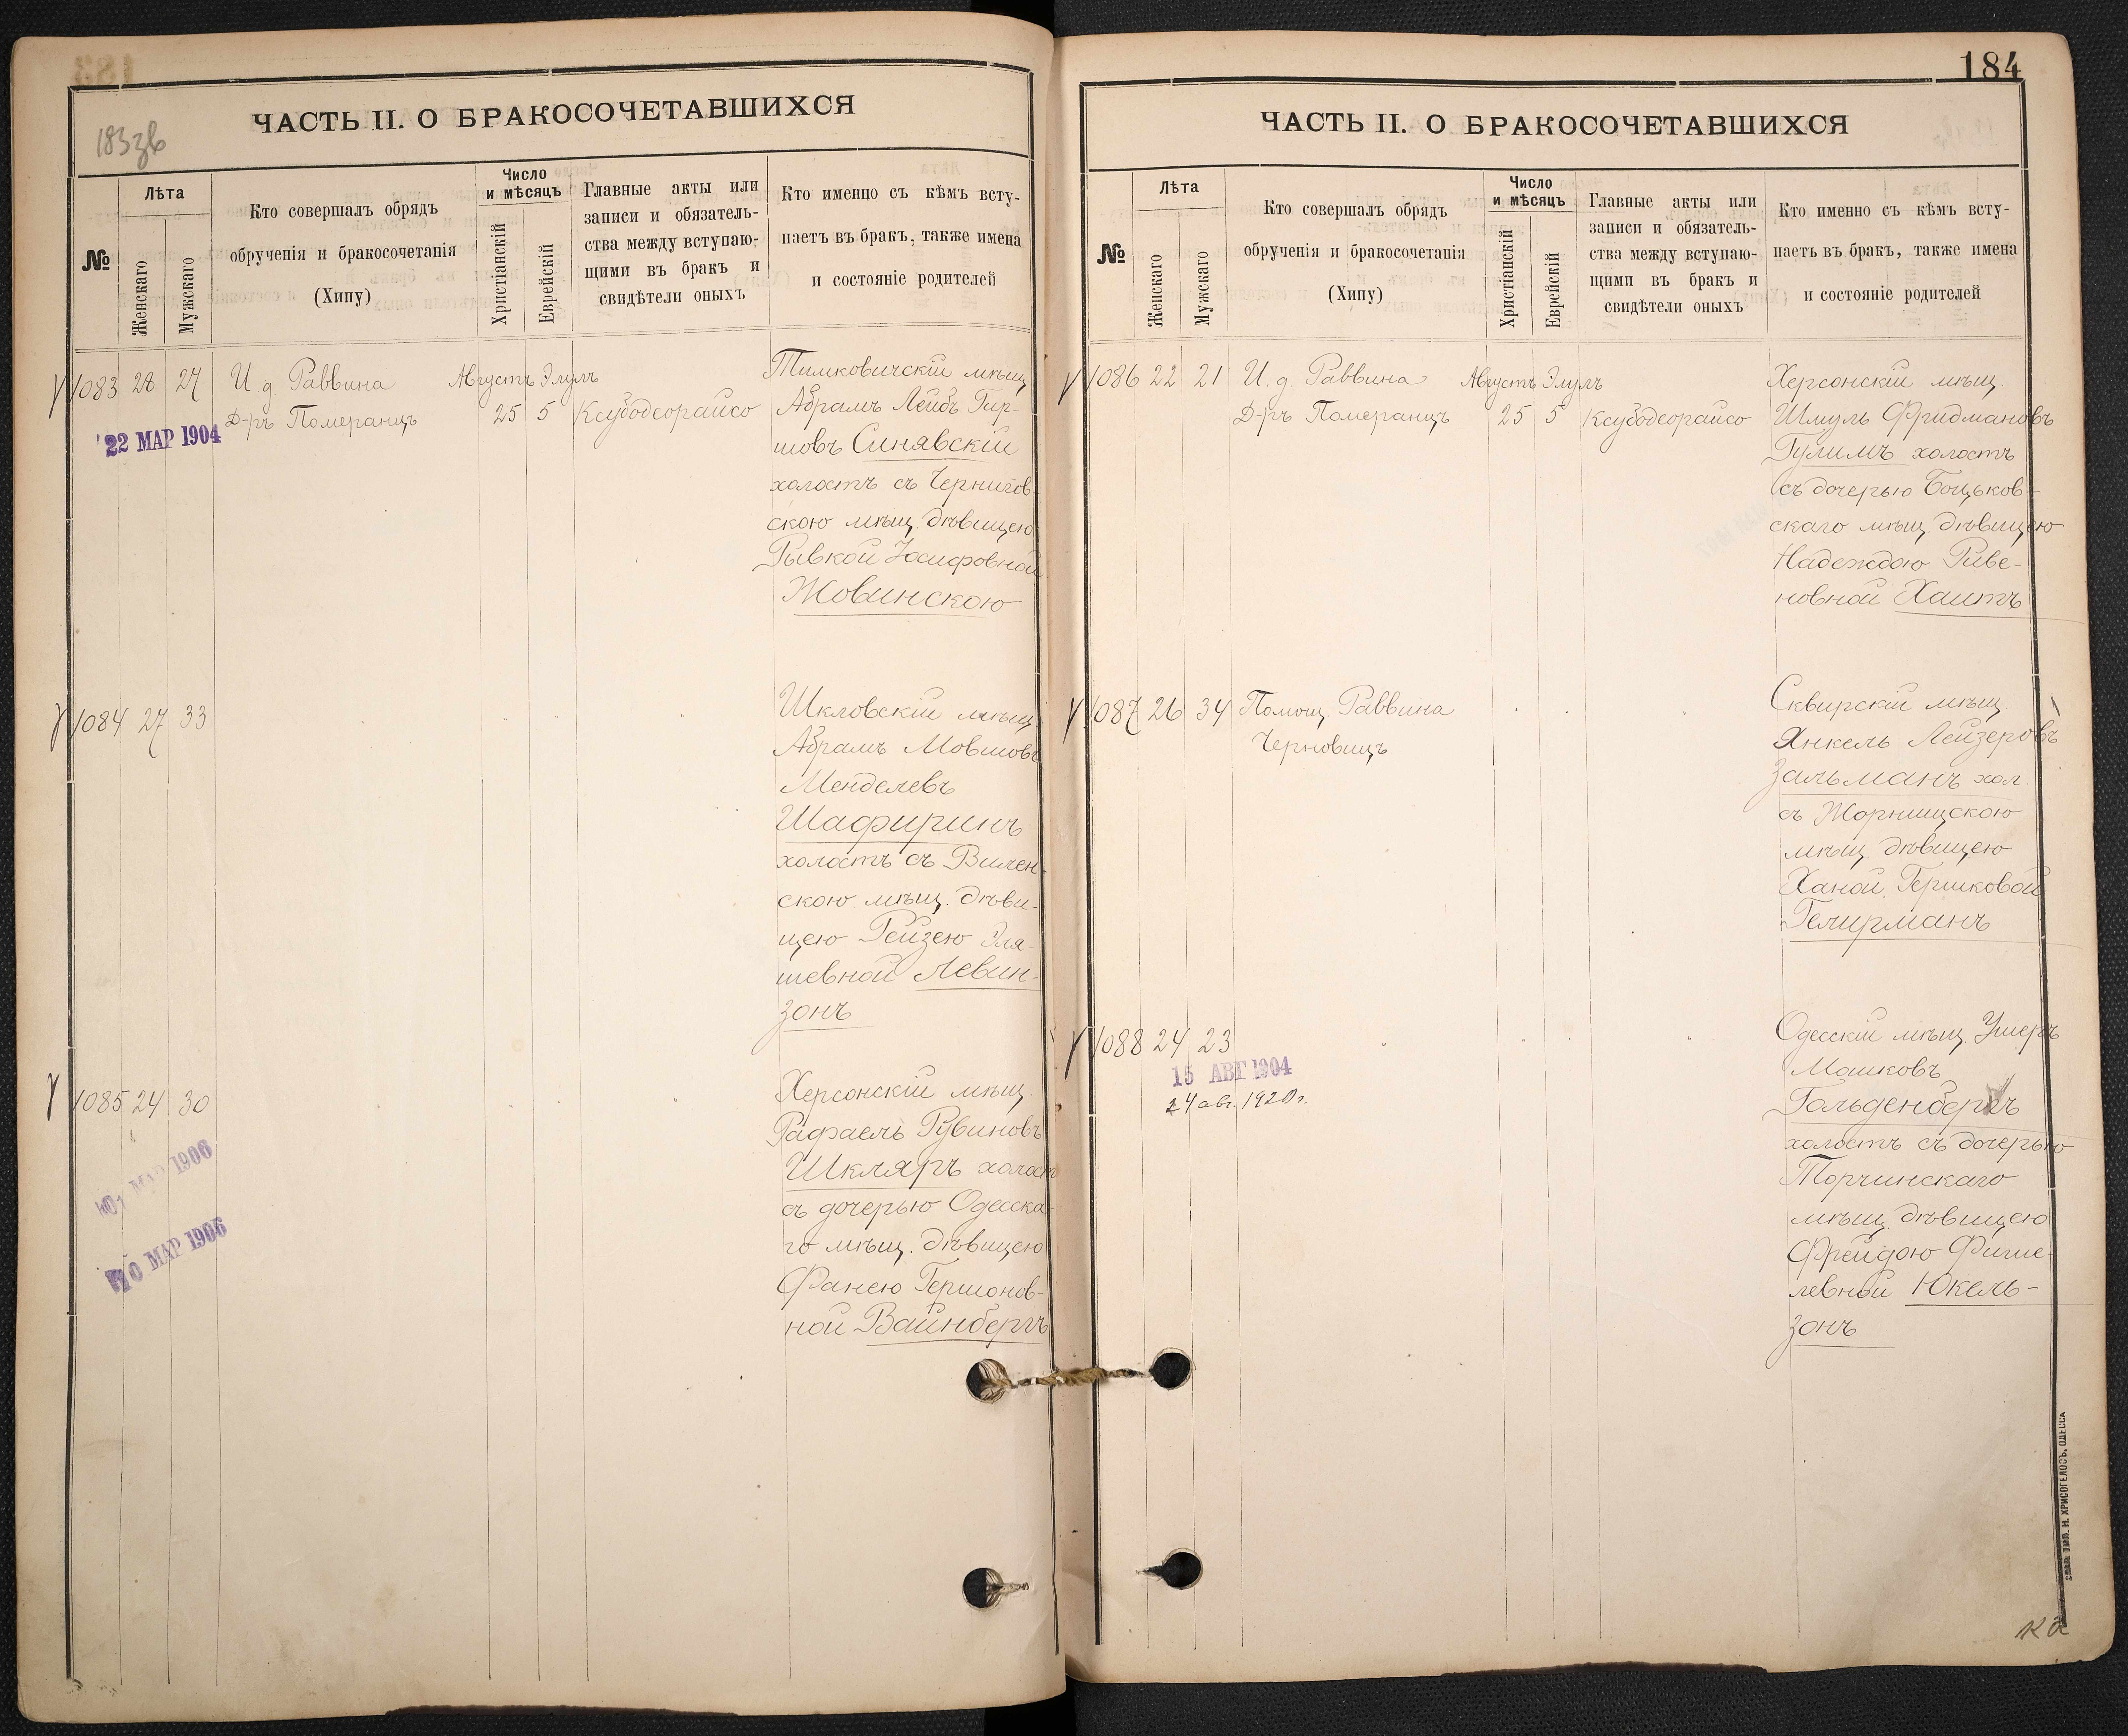 183 зв
ЧАСТЬ II. О БРАКОСОЧЕТАВШИХСЯ
№
Лѣта
Женскаго
Мужскаго
Кто совершалъ обрядъ
обрученія и бракосочетанія
(Хипу)
Число
и мѣсяцъ
Христіанскій
Еврейскій
Главные акты или
записи и обязатель-
ства между вступаю-
щими въ бракъ и
свидѣтели оныхъ
Кто именно съ кѣмъ всту-
паетъ въ бракъ, также имена
и состояніе родителей
1083 28 27 И д Раввина Августъ Элулъ
Д-ръ Померанцъ 25 5 Ксубодеорайсо
22 МАР 1904
Тимковичскій мѣщ
Абрамъ Лейбъ Гир-
шовъ Синявскій
холостъ съ Чернигов-
скою мѣщ. дѣвицею
Рывкой Іосифовной
Жовинскою
1084 27 33
Шкловскій мѣщ.
Абрамъ Мовшовъ
Менделевъ
Шафиринъ
холостъ съ Вилен-
скою мѣщ. дѣви-
цею Рейзею Эля-
шевной Левин-
зонъ
1085 24 30
МАР 1906
10 МАР 1906
Херсонскій мѣщ.
Рафаель Рувиновъ
Шкляръ холостъ
съ дочерью Одесска-
го мѣщ. дѣвицею
Фанею Гершонов-
ной Вайнбергъ
184
ЧАСТЬ II. О БРАКОСОЧЕТАВШИХСЯ
№
Лѣта
Женскаго
Мужскаго
Кто совершалъ обрядъ
обрученія и бракосочетанія
(Хипу)
Число
и мѣсяцъ
Христіанскій
Еврейскій
Главные акты или
записи и обязатель-
ства между вступаю-
щими въ бракъ и
свидѣтели оныхъ
Кто именно съ кѣмъ всту-
паетъ въ бракъ, также имена
и состояніе родителей
1086 22 21 И. д. Раввина Августъ Элулъ
Д-ръ Померанцъ 25 5 Ксубодеорайсо
Херсонскій мѣщ.
Шмуль Фридмановъ
Гулимъ холостъ
съ дочерью Боцьков-
скаго мѣщ дѣвицею
Надеждою Риве-
новной Хаитъ
1087 26 34 Помощ. Раввина
Черновицъ
Сквирскій мѣщ.
Янкель Лейзеровъ
Зальманъ хол
съ Жорнищскою
мѣщ. дѣвицею
Ханой Гершковой
Гелирманъ
1088 24 23
15 АВГ 1904
24 авг. 1920 г.
Одесскій мѣщ. Ушеръ
Мошковъ
Гольденбергъ
холостъ съ дочерью
Торчинскаго
мѣщ. дѣвицею
Фрейдою Фише-
левной Юкель-
зонъ
Слав. тип. Н. ХРИСОГЕЛОСЪ, ОДЕССА